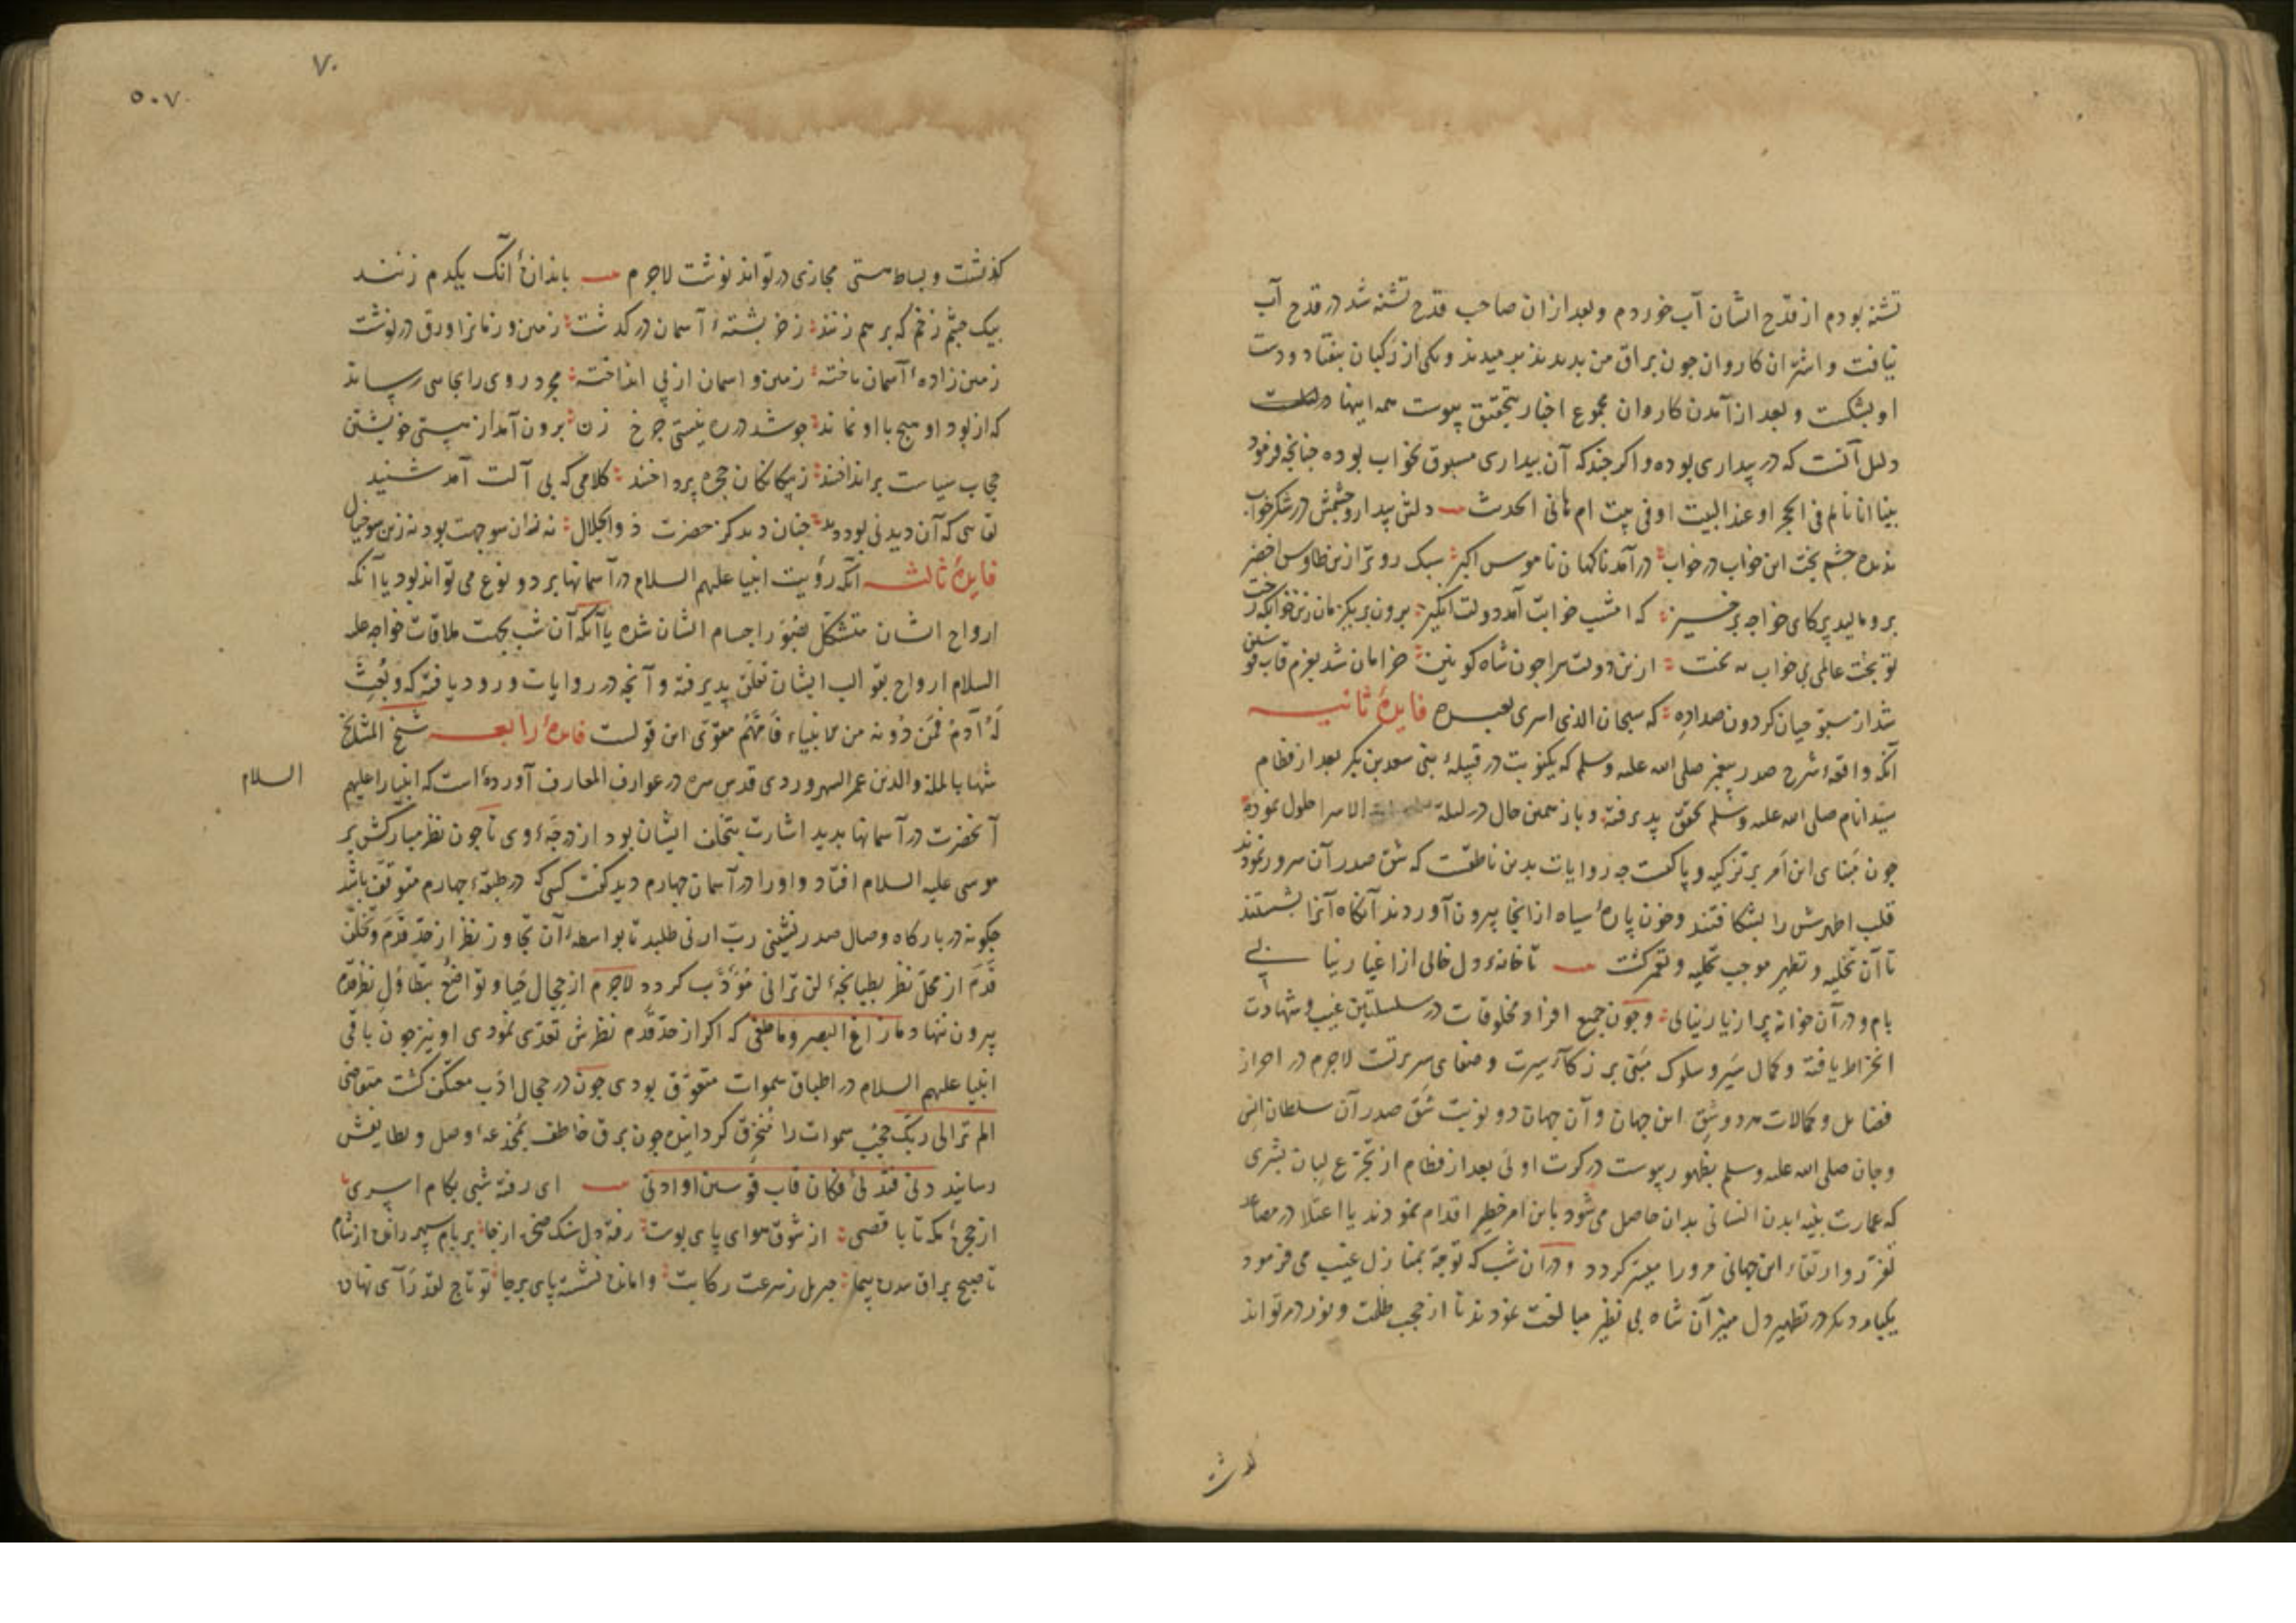 تشنه بودم از قدح ایشان آب خوردم و بعد ازان صاحب قدح تشنه شد در قدح آب
نیافت و اشتران کاروان جون براق من بدیدند برمیدند و یکی از رکبان بیفتاد و دست
او بشکست و بعد از آمدن کاروان مجموع اخبار بتحقیق پیوست همه اینها
دلیل آنست که در بیداری بوده و اکر جند که آن بیداری مسبوق بخواب بوده جنانجه فرمود
بینا انا نایم فی الحجر او عند البیت او فی بیت ام هانی الحدیث دلش بیدار و جشمش در شکر خواب
ندیده جشم بخت این خواب در خواب درآمد ناکهان ناموس اکبر سبک روتر ازین طاوس اخضر
برو مالید پر کای خواجه برخیز که امشب خوابت آمد دولت انکیز برون بر یکزمان زین خوابکه رخت
تو بخت عالمی بی خواب به بخت ازین دولت سرا جون شاه کونین خرامان شد بعزم قاب قوسین
شد از سبوحیان کردون صداده که سبحان الذی اسری بعبده فایدهٔ ثانیه
آنکه واقعهٔ شرح صدر پیغمبر صلی الله علیه وسلم که یکنوبت در قبیلهٔ بنی سعد بن بکر بعد از فطام
سید انام صلی الله علیه وسلم تحقق پذیرفته و باز همین حال در لیلة الاسرا حلول نموده
جون مبنای این امر بر تزکیه و پاکیست جه روایات بدین ناطقست که شق صدر آن سرور نمودند
قلب اطهرش را بشکافتند و خون پارهٔ سیاه از انجا بیرون آوردند آنکاه آنرا بشستند
تا آن تخلیه و تطهیر موجب تحلیه و تعمیر کشت تا خانهٔ دل خالی از اغیار نیابی
بام و در آن خانه پر از یار نیابی و جون جمیع افراد مخلوقات در سلسلتین غیب و شهادت
انخراط یافته و کمال سیر و سلوک مبنی بر زکاء سیرت و صفای سریرتست لاجرم در احراز
فضایل و کمالات هر دو شق این جهان و آن جهان دو نوبت شق صدر آن سلطان انس
و جان صلی الله علیه وسلم بظهور پیوست در کرت اولی بعد از فطام از تجرع لبان بشری
که عمارت بنیه ابدن انسانی بدان حاصل می شود باین امر خطیر اقدام نمودند یا اعتلا در مصاعد
تفرد و ارتقاء این جهانی مرورا میسر کردد و در آن شب که توجه بمنازل غیب می فرمود
یکبار دیکر در تطهیر دل منیر آن شاه بی نظیر مبالغت نمودند تا از حجب ظلمت و نور در تواند
۷۰
۵۰۷
کذشت و بساط هستی مجازی در تواند نوشت لاجرم باندازهٔ آنک یکدم زنند
بیک جشم زخم که بر هم زنند ز خر پشتهٔ آسمان در کذشت زمین و زمانرا ورق در نوشت
زمین زادهٔ آسمان تاخته زمین و اسمان از پی انداخته مجرد روی را بجایی رساند
که از بود او هیج با او نماند جو شد در ره نیستی جرخ زن برون آمد از هستی خویشتن
حجاب سیاست برانداختند ز بیکانکان حجره پرداختند کلامی که بی آلت آمد شنید
لقایی که آن دیدنی بود دید جنان دید کز حضرت ذو الجلال نه زان سو جهت بود نه زین سو خیال
فایدهٔ ثالثه آنکه رؤیت انبیا علیهم السلام در آسمانها بر دو نوع می تواند بود یا آنکه
ارواح ایشان متشکل بصور اجسام ایشان شده یا آنکه آن شب بجهت ملاقات خواجه علیه
السلام ارواح بقوالب ایشان تعلق پذیرفته و آنجه در روایات ورود یافته که و بعث
له آدم فمن دونه من الانبیاء فامهم مقوی این قولست فایدهٔ رابعه شیخ المشایخ
شهاب الملة والدین عمر السهروردی قدس سره در عوارف المعارف آورده است که انبیا را علیهم
السلام
آنحضرت در آسمانها بدید اشارت بتخلف ایشان بود از درجهٔ وی تا جون نظر مبارکش بر
موسی علیه السلام افتاد و او را در آسمان جهارم دید کفت کسی که در طبقهٔ جهارم متوقف باشد
جکونه در بارکاه وصال صدر نشینی رب ارنی طلبد تا بواسطهٔ آن تجاوز نظر از حد قدم و تخلف
قدم از محل نظر بطپانجهٔ لن ترانی مؤدب کردد لاجرم از حجال حیا و تواضع بتطاول نظر قدم
بیرون ننهاد ما زاغ البصر و ما طغی که اکر از حد قدم نظرش تعدی نمودی او نیز جون باقی
انبیا علیهم السلام در اطباق سموات متعوق بودی جون در حجال ادب معتکف کشت متقاضی
الم تر الی ربک حجب سموات را منخرق کردانیده جون برق خاطف بمخدعهٔ وصل و لطایفش
رسانید دنی فتدلی فکان قاب قوسین او ادنی ای رفته شبی بکام اسری
از حجرهٔ مکه تا باقصی از شوق هوای پای بوست رفته دل سنک صخره از جا بر بام سپهر رانده از شام
تا صبح براق سدره پیما جبریل ز سرعت رکابت وامانده نشسته پای برجا تو تاج لقد رآی نهاده